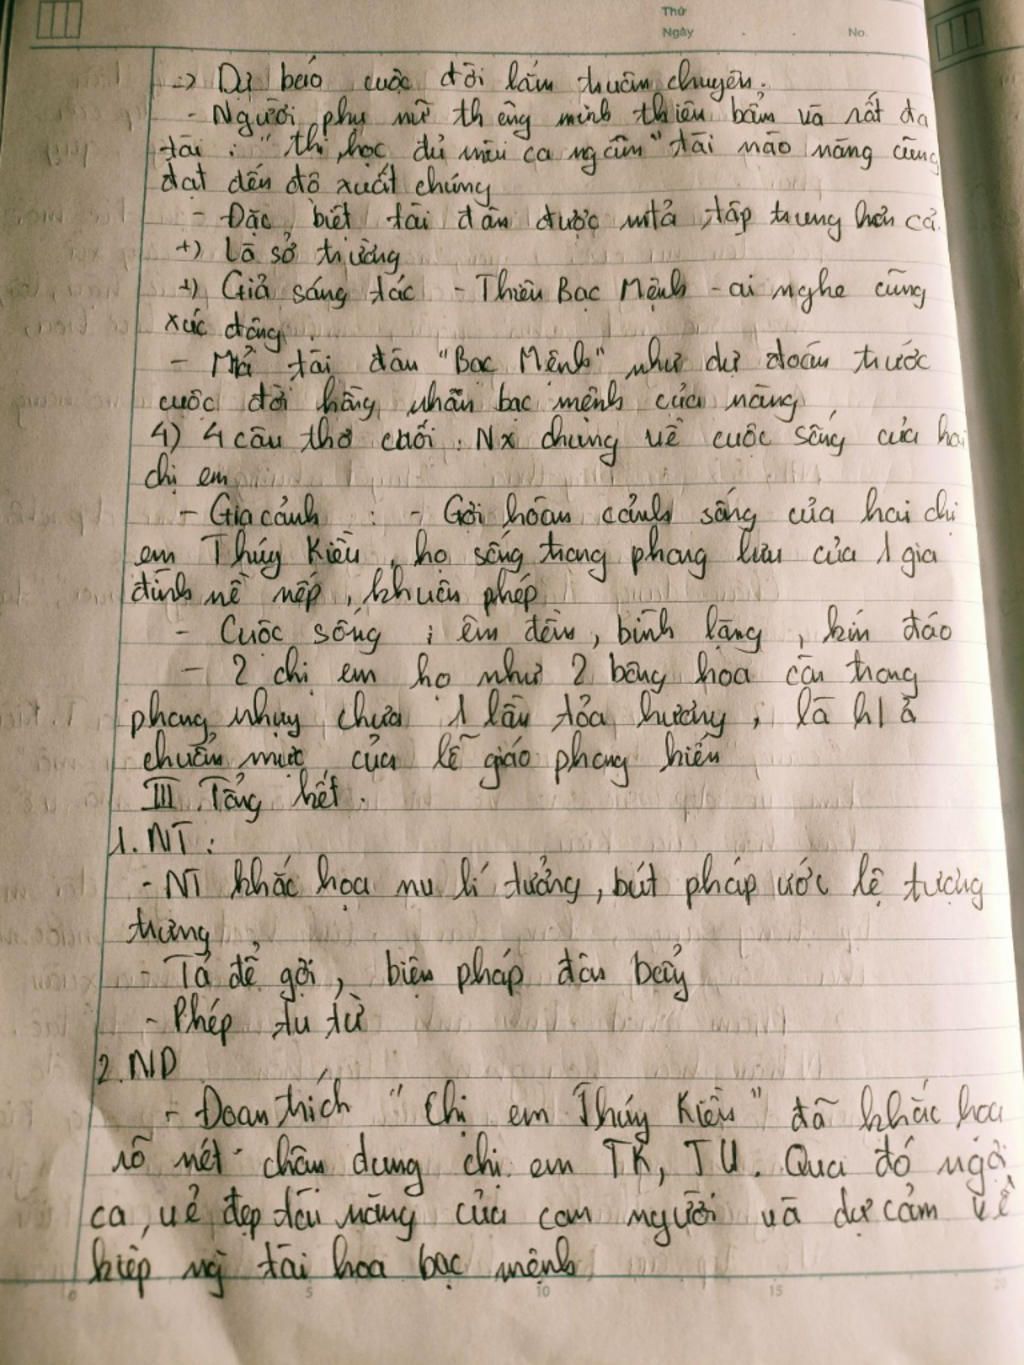 Thứ
Ngày . . No.
=> Dự báo cuộc đời lắm truân chuyên.
- Người phụ nữ thông minh thiên bẩm và rất đa
tài : "thi, học đủ mùi ca ngâm" tài nào năng cũng
đạt đến độ xuất chúng
- Đặc biết tài đàn được mtả tập trung hơn cả.
+) Là sở trường
+) Giả sáng tác - Thiên Bạc Mệnh - ai nghe cũng
xúc động.
- Mtả tài đàn "Bạc Mệnh" như dự đoán trước
cuộc đời hồng nhan bạc mệnh của nàng
4) 4 câu thơ cuối : Nx chung về cuộc sống của hai
chị em
- Gia cảnh : - Gợi hoàn cảnh sống của hai chị
em Thúy Kiều, họ sống trong phong lưu của 1 gia
đình nề nếp, khuôn phép
- Cuộc sống : êm đềm, bình lặng, kín đáo
- 2 chị em họ như 2 bông hoa còn trong
phong nhụy chưa 1 lần tỏa hương, là h/ả
chuẩn mực của lễ giáo phong kiến
III. Tổng kết.
1. NT:
- NT khắc họa nv lí tưởng, bút pháp ước lệ tượng
trưng
- Tả để gợi, biện pháp đòn bẩy
- Phép tu từ
2. ND
- Đoạn trích "Chị em Thúy Kiều" đã khắc họa
rõ nét chân dung chị em TK, TV. Qua đó ngợi
ca, vẻ đẹp tài năng của con người và dự cảm về
kiếp ng tài hoa bạc mệnh
5 10 15 20